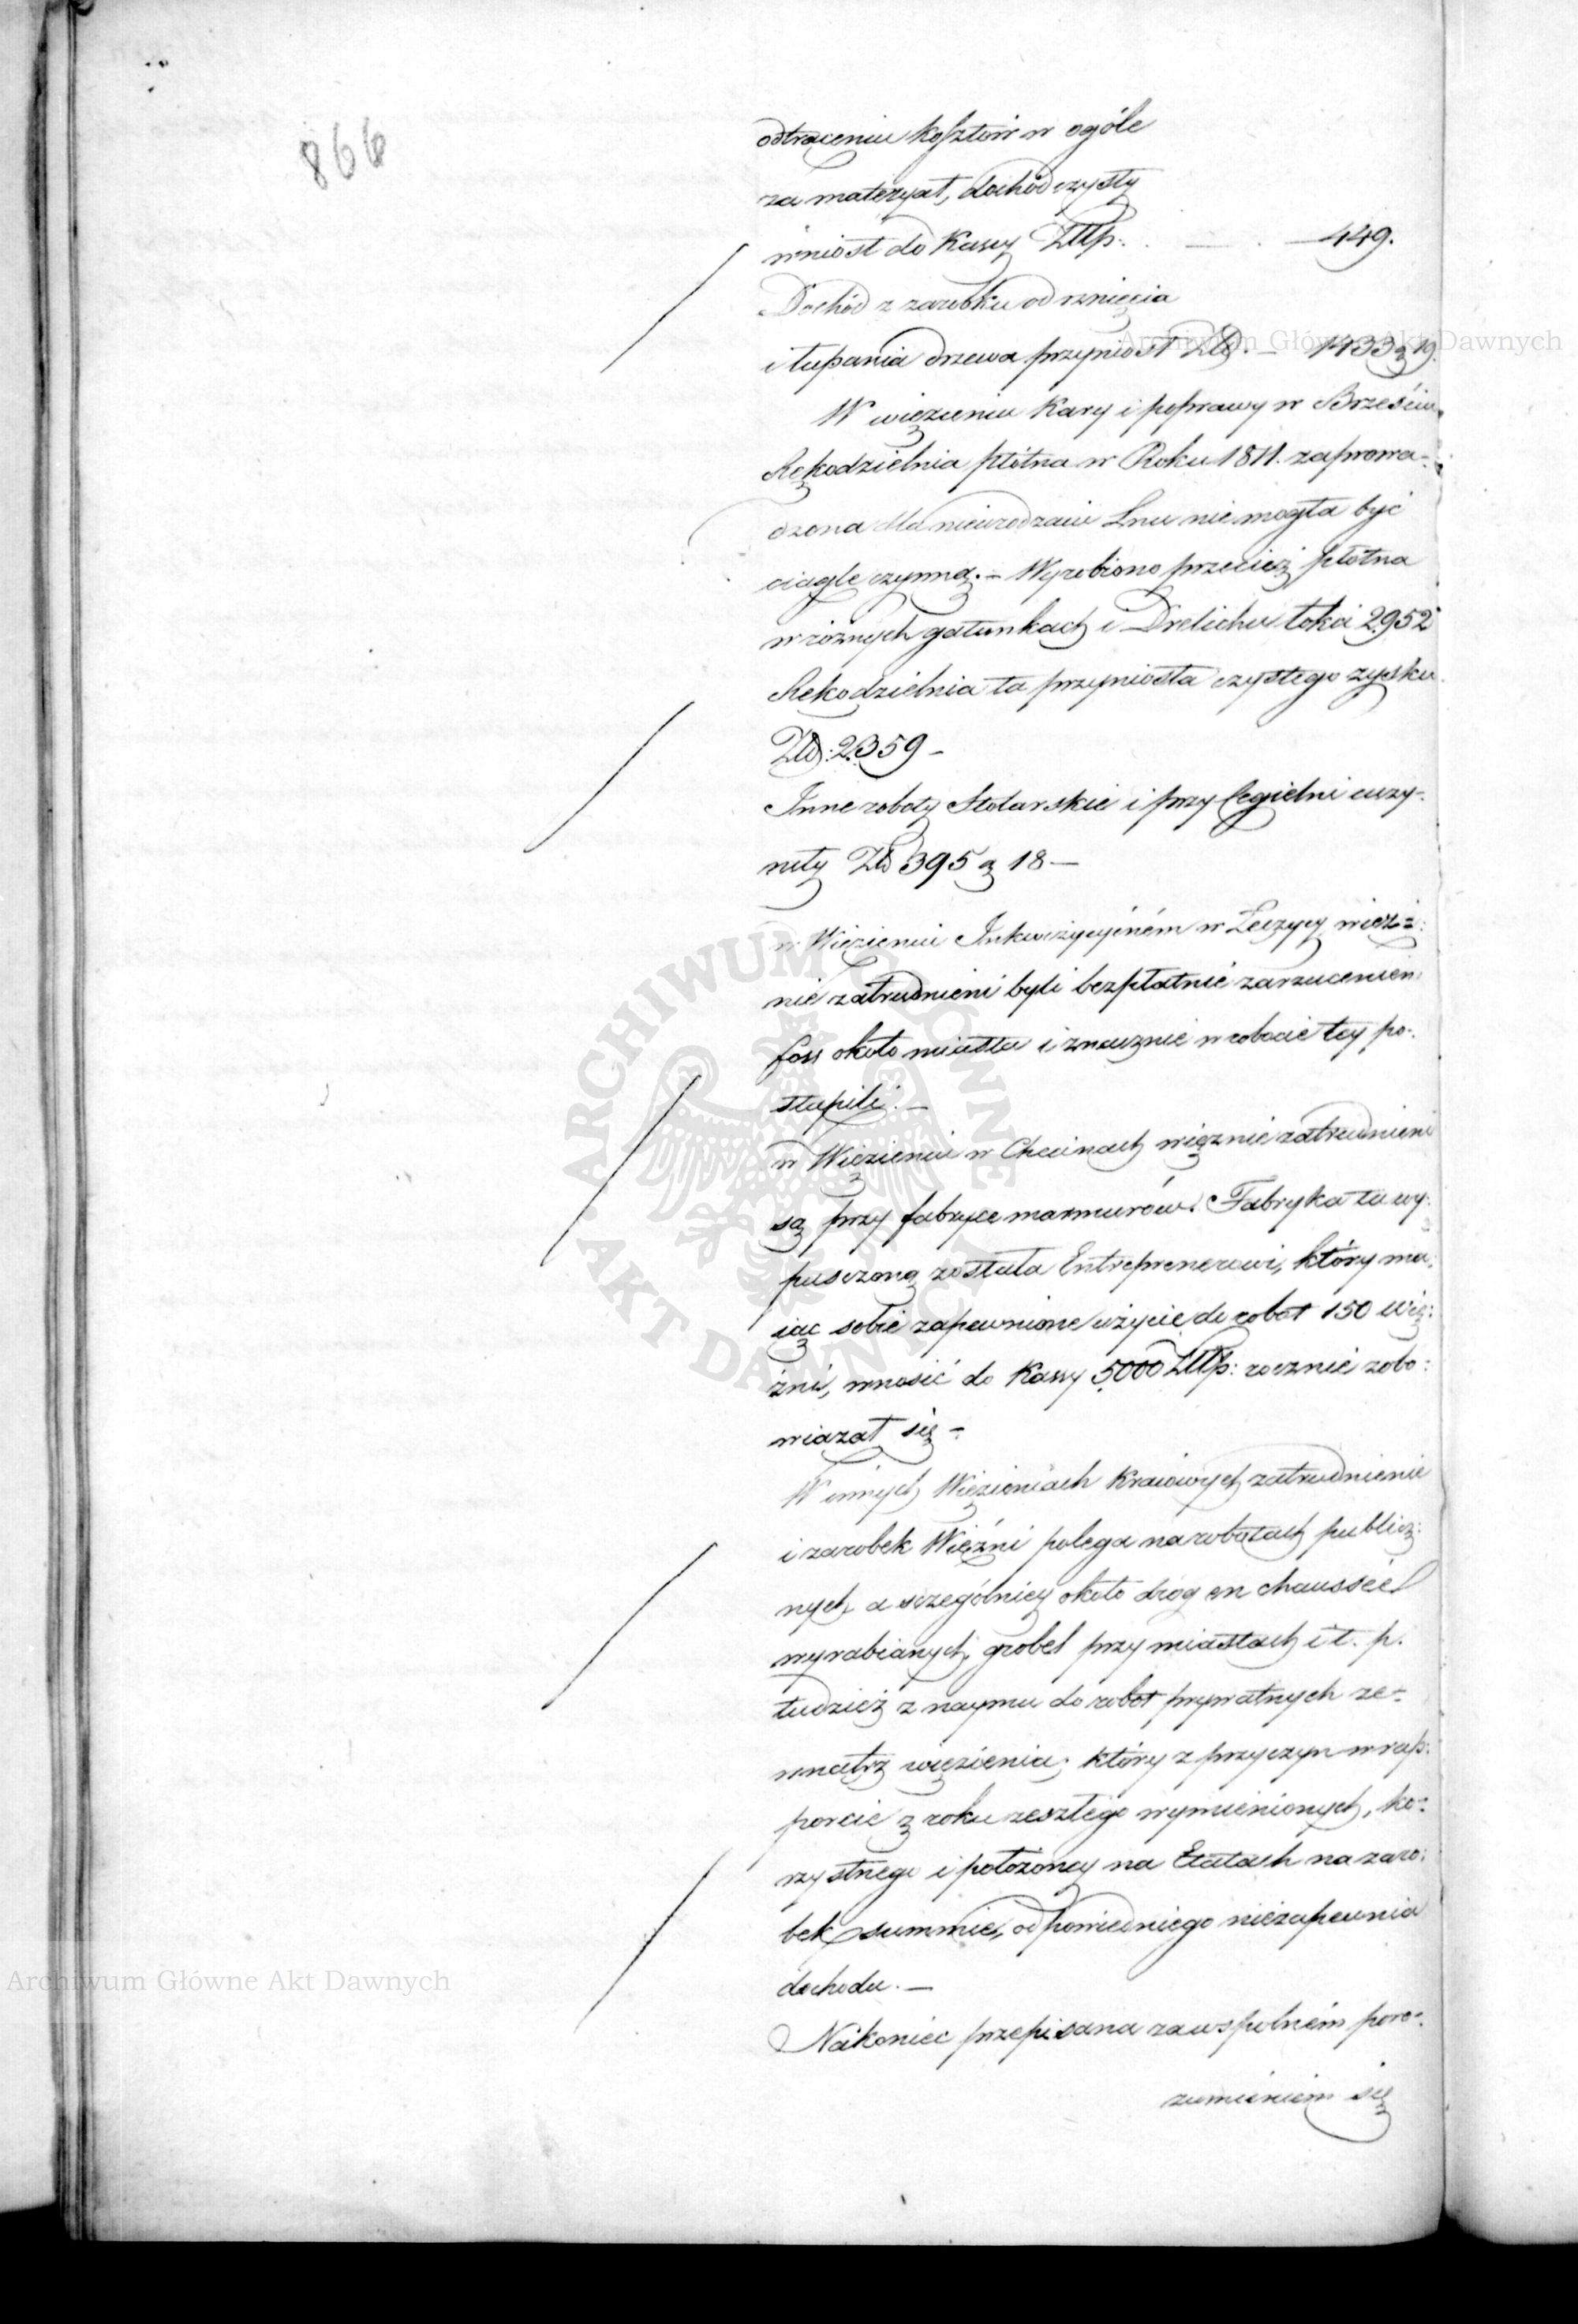 866
odtrąceniu kosztów w ogóle
za materyał, dochód czysty
wniósł do Kassy Złłp: . — . — 449.
Dochód z zarobku od rznięcia
i łupania drzewa przyniósł Zł. — 1433 g 19.
W więzieniu Kary i poprawy w Brześciu
Rękodzielnia płótna w Roku 1811. zaprowa-
dzona dla nieurodzaiu Lnu nie mogła być
ciągle czynną. – Wyrobiono przecież płótna
w różnych gatunkach i Drelichu łokci 2952
Rękodzielnia ta przyniosła czystego zysku
Zł: 2359 –
Inne roboty Stolarskie i przy Cegielni uczy-
niły Zł 395 g 18 —
w Więzieniu Inkwizycyiném w Łęczycy więź:
nie zatrudnieni byli bezpłatnie zarzuceniem
foss około miasta i znacznie w robocie tey po-
stąpili. —
w Więzieniu w Chęcinach więznie zatrudnieni
są przy fabryce marmurów. Fabryka ta wy:
pusczoną została Entreprenerowi, który ma:
iąc sobie zapewnione użycie do robot 150 wię:
źni, wnosić do Kassy 5000 Złłp: rocznie zobo:
wiązał się –
W innych Więzieniach Kraiowych zatrudnienie
i zarobek Więźni polega na robotach publicz:
nych, a sczególniey około dróg en chaussée
wyrabianych, grobel przy miastach i t. p.
tudzież z naymu do robot prywatnych ze-
wnątrz więzienia; który z przyczyn w rap:
porcie z roku zeszłego wymienionych, ko-
rzystnego i położoney na Etatach na zaro:
bek summie, odpowiedniego niezapewnia
dochodu. —
Nakoniec przepisana za wspólném poro-
zumieniem się
Archiwum Główne Akt Dawnych
Archiwum Główne Akt Dawnych
ARCHIWUM GŁÓWNE AKT DAWNYCH